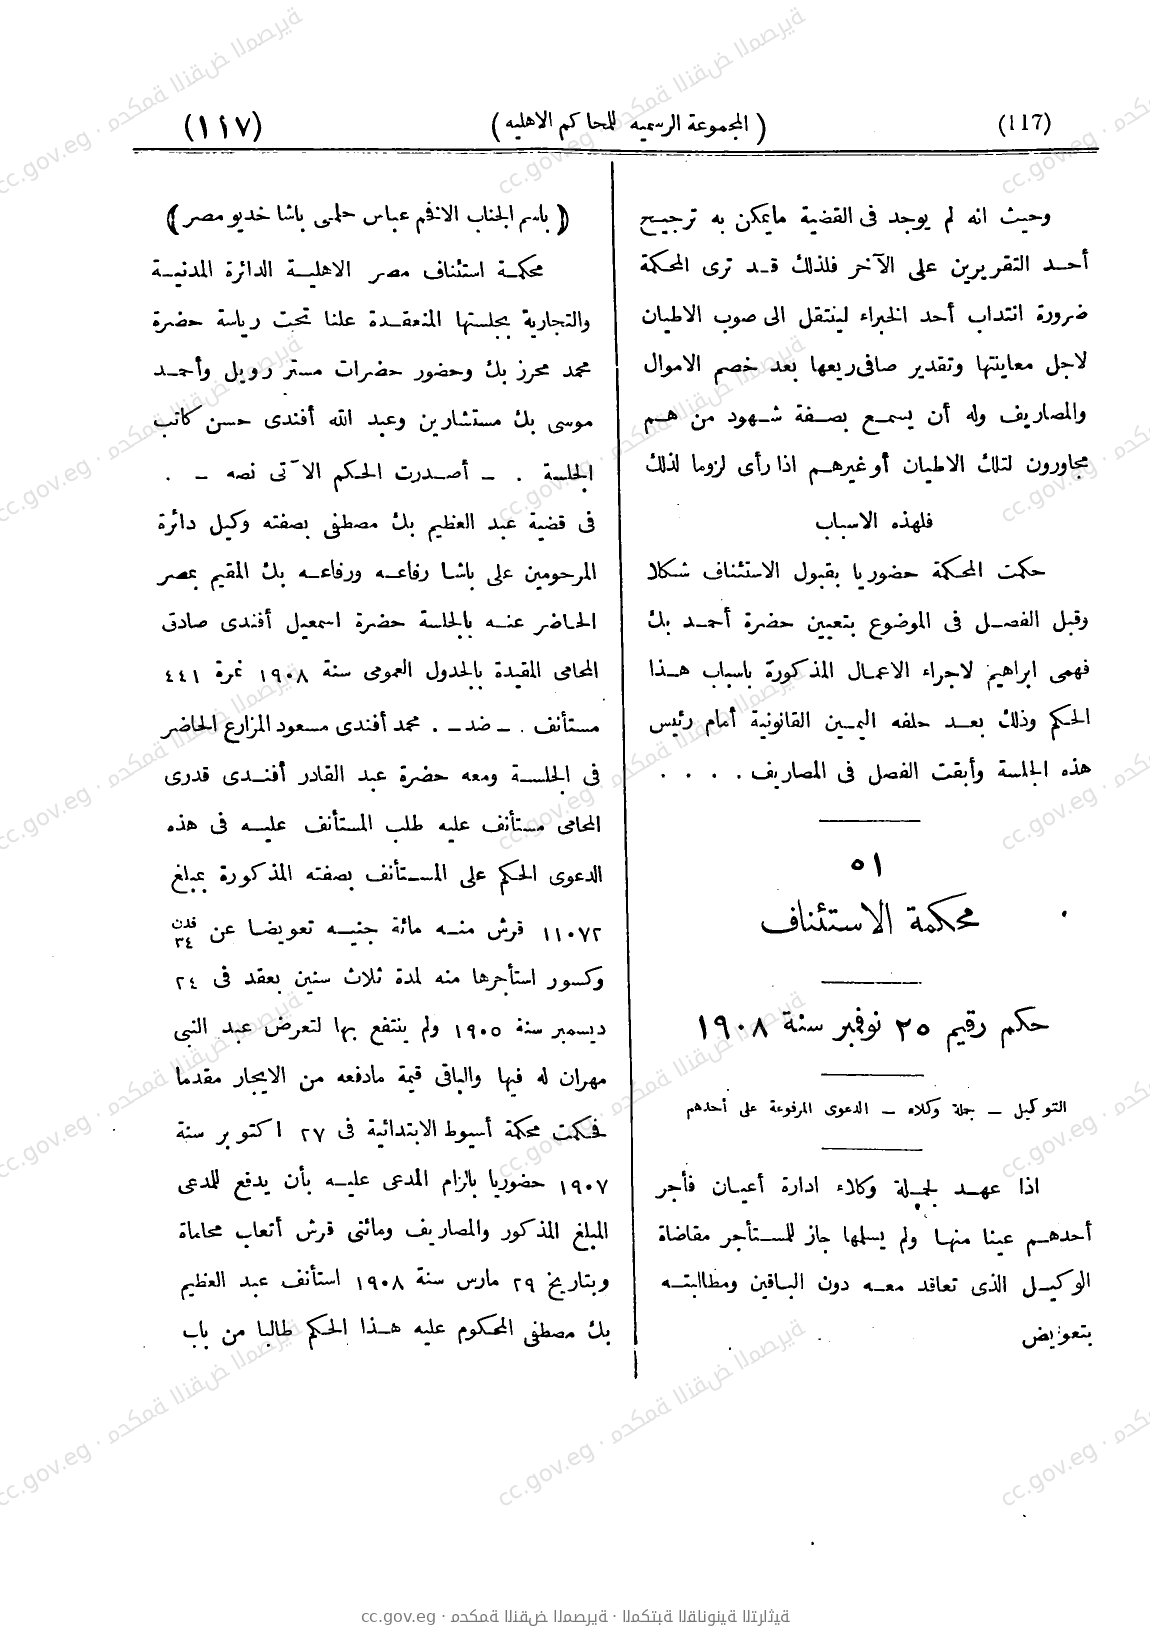 (117)
( المجموعة الرسميه للمحاكم الاهليه )
(١١٧)
وحيث انه لم يوجد فى القضية مايمكن به ترجيح
أحد التقريرين على الآخر فلذلك قد ترى المحكمة
ضرورة انتداب أحد الخبراء لينتقل الى صوب الاطيان
لاجل معاينتها وتقدير صافى ريعها بعد خصم الاموال
والمصاريف وله أن يسمع بصفة شهود من هم
مجاورون لتلك الاطيان أو غيرهم اذا رأى لزوما لذلك
فلهذه الاسباب
حكمت المحكمة حضوريا بقبول الاستئناف شكلا
وقبل الفصل فى الموضوع بتعيين حضرة أحمد بك
فهمى ابراهيم لاجراء الاعمال المذكورة باسباب هذا
الحكم وذلك بعد حلفه اليمين القانونية أمام رئيس
هذه الجلسة وأبقت الفصل فى المصاريف . . . .
٥١
محكمة الاستئناف
حكم رقيم ٢٥ نوفمبر سنة ١٩٠٨
التوكيل – جملة وكلاء – الدعوى المرفوعة على أحدهم
اذا عهد لجملة وكلاء ادارة أعيان فأجر
أحدهم عينا منها ولم يسلمها جاز للمستأجر مقاضاة
الوكيل الذى تعاقد معه دون الباقين ومطالبته
بتعويض
( باسم الجناب الافخم عباس حلمى باشا خديو مصر )
محكمة استئناف مصر الاهلية الدائرة المدنية
والتجارية بجلستها المنعقدة علنا تحت رياسة حضرة
محمد محرز بك وحضور حضرات مستر رويل وأحمد
موسى بك مستشارين وعبد الله أفندى حسن كاتب
الجلسة . – أصدرت الحكم الآتى نصه – .
فى قضية عبد العظيم بك مصطفى بصفته وكيل دائرة
المرحومين على باشا رفاعه ورفاعه بك المقيم بمصر
الحاضر عنه بالجلسة حضرة اسمعيل أفندى صادق
المحامى المقيدة بالجدول العمومى سنة ١٩٠٨ نمرة ٤٤١
مستأنف . – ضد – . محمد أفندى مسعود المزارع الحاضر
فى الجلسة ومعه حضرة عبد القادر أفندى قدرى
المحامى مستأنف عليه طلب المستأنف عليه فى هذه
الدعوى الحكم على المستأنف بصفته المذكورة بمبلغ
١١٠٧٢ قرش منه مائة جنيه تعويضا عن فدن ٣٤
وكسور استأجرها منه لمدة ثلاث سنين بعقد فى ٢٤
ديسمبر سنة ١٩٠٥ ولم ينتفع بها لتعرض عبد النبى
مهران له فيها والباقى قيمة مادفعه من الايجار مقدما
فحكمت محكمة أسيوط الابتدائية فى ٢٧ اكتوبر سنة
١٩٠٧ حضوريا بالزام المدعى عليه بأن يدفع للمدعى
المبلغ المذكور والمصاريف ومائتى قرش أتعاب محاماة
وبتاريخ ٢٩ مارس سنة ١٩٠٨ استأنف عبد العظيم
بك مصطفى المحكوم عليه هذا الحكم طالبا من باب
cc.gov.eg · محكمة النقض المصرية · المكتبة القانونية التراثية